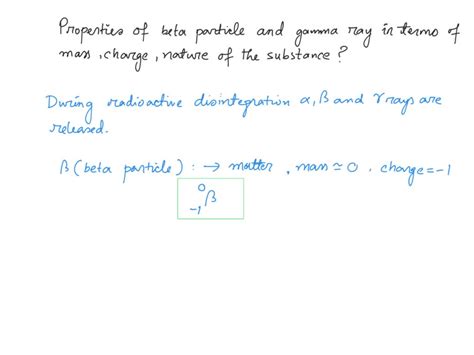 Properties of beta particle and gamma ray in terms of
mass, charge, nature of the substance?
During radioactive disintegration α, β and γ rays are
released.
β (beta particle) : → matter, mass ≃ 0. charge = -1
⁰₋₁β